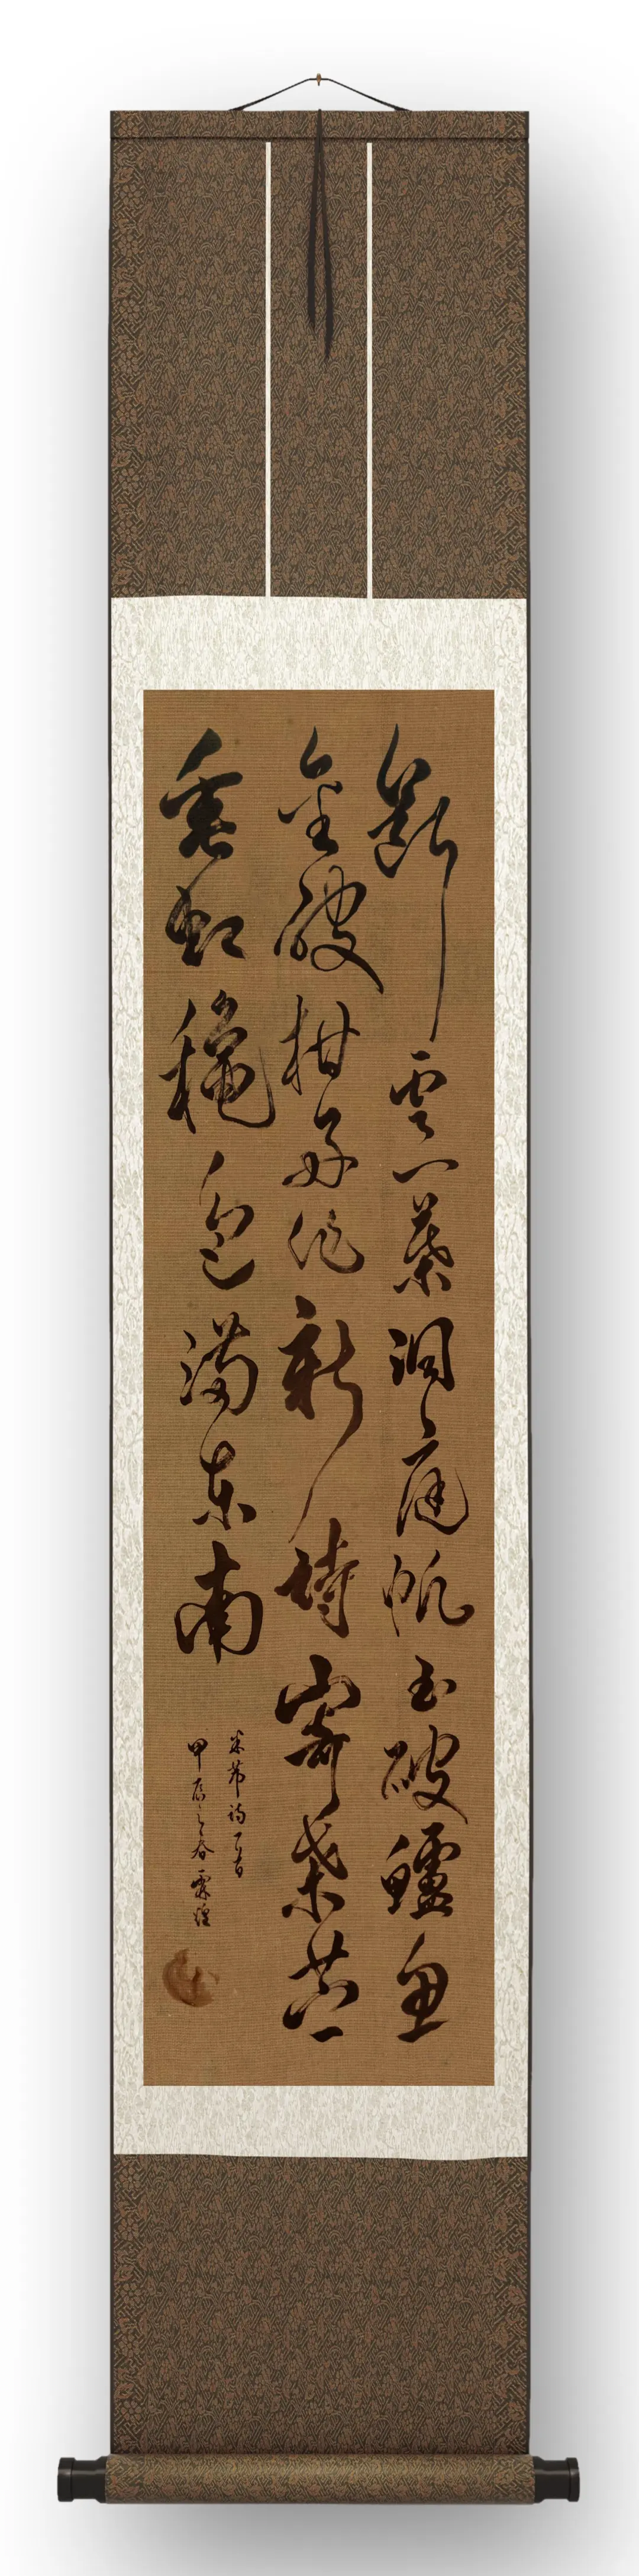 斷雲一葉洞庭帆玉破鱸魚
金破柑好作新詩寄桑苎
垂虹穐色滿東南
米芾詩一首
甲辰之春霖煌